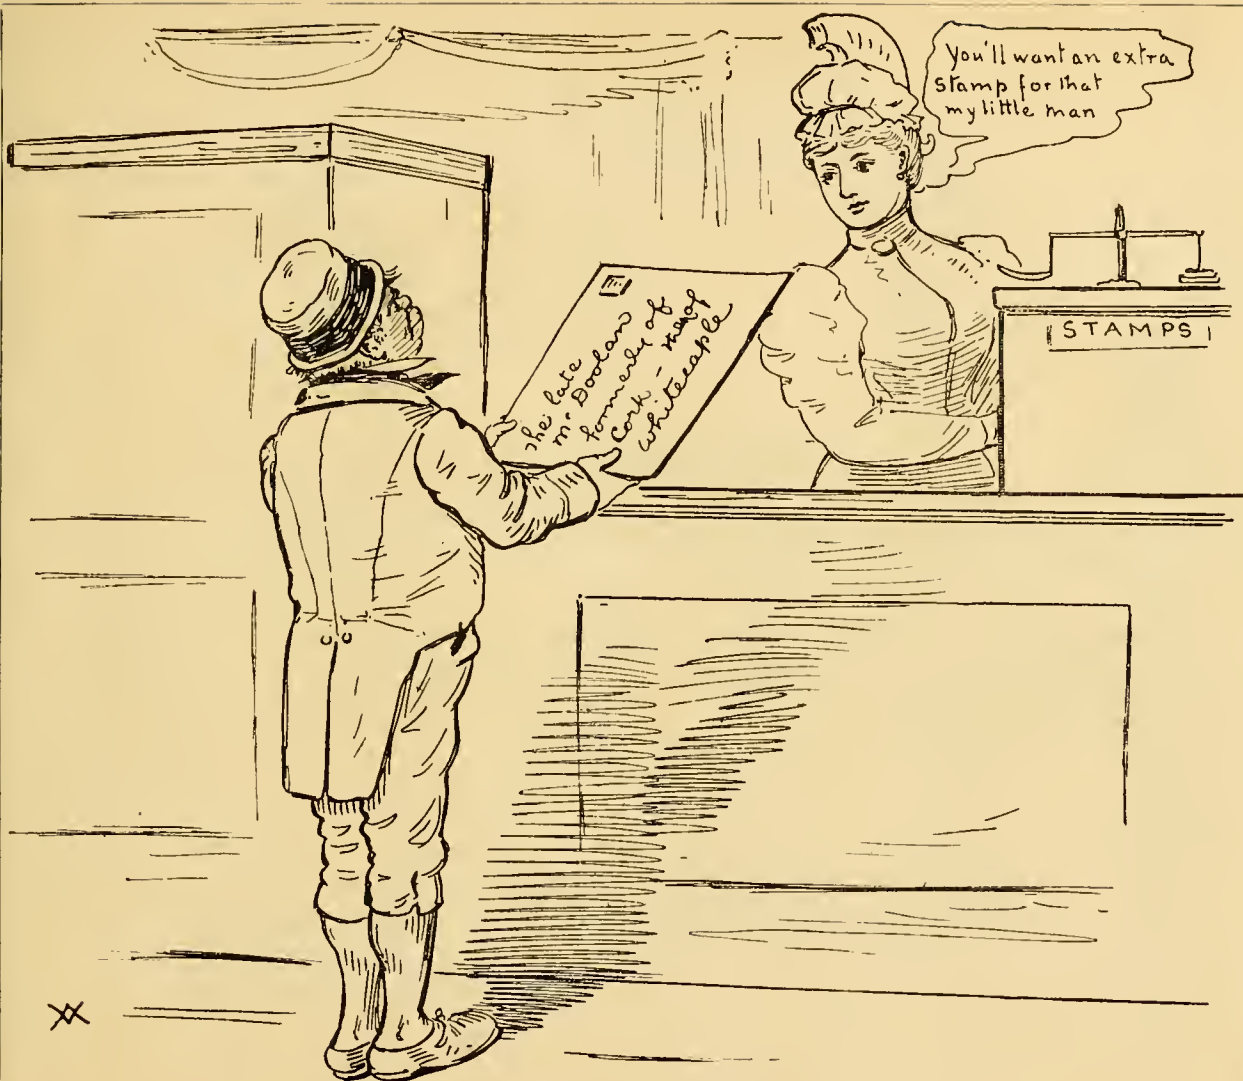 You'll want an extra
stamp for that
my little man
STAMPS
The late
Mr Doolan
formerly of
Cork - now of
Whitechaple